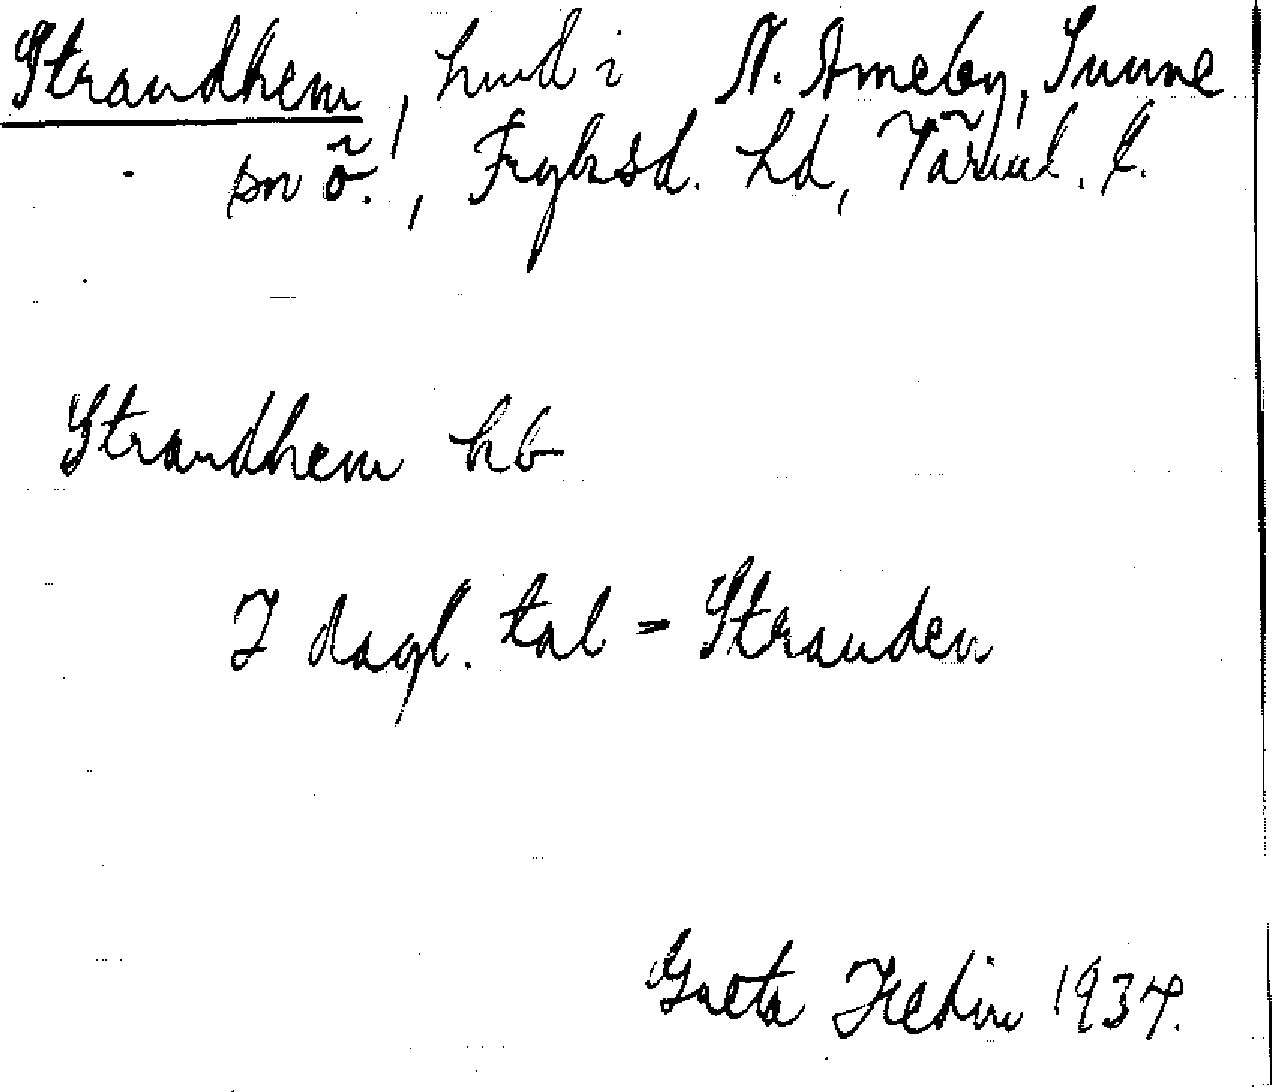 Strandhem, hmd i N. Åmeby, Sunne
sn ö., Fryksd. hd, Värml. l.
Strandhem hb
I dagl. tal = Stranden
Greta Hedin 1934.